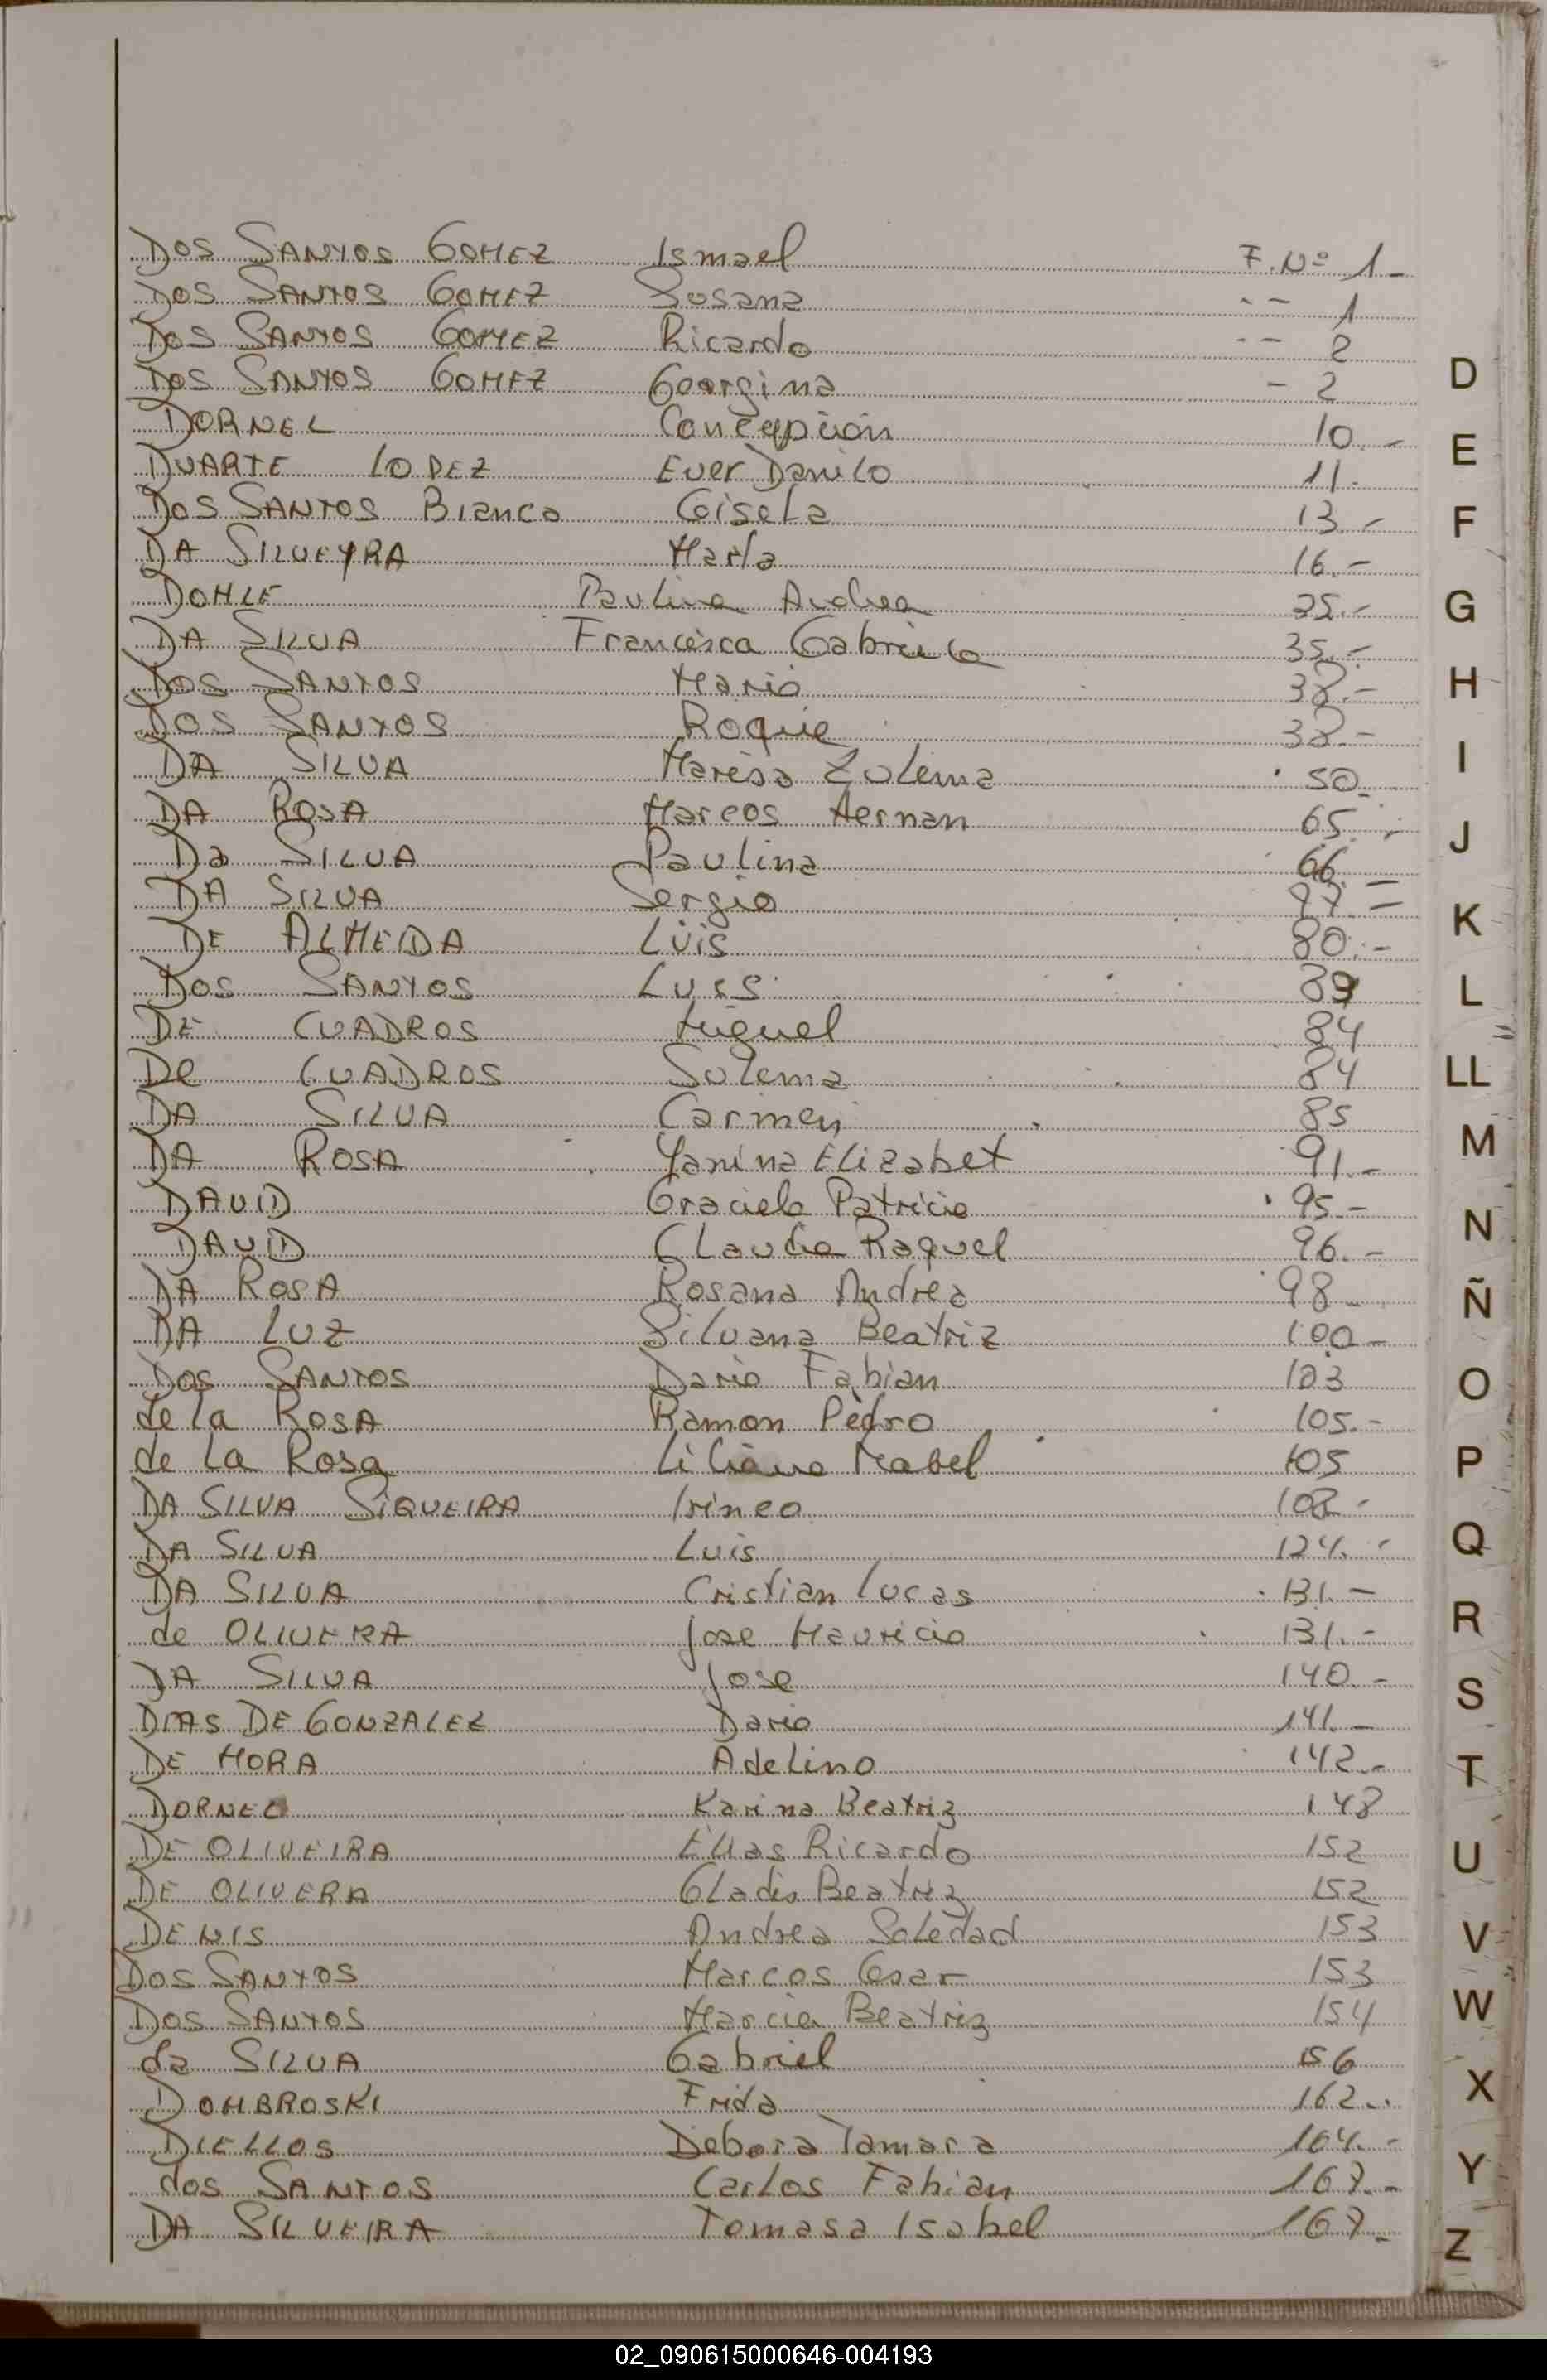 DOS SANTOS GOMEZ Ismael F. Nº 1-
DOS SANTOS GOMEZ Susana -- 1
DOS SANTOS GOMEZ Ricardo -- 2
DOS SANTOS GOMEZ Georgina - 2
DORNEL Concepcion 10.-
DUARTE LOPEZ Ever Danilo 11.
DOS SANTOS Bianco Gisela 13.-
DA SILVEYRA Marla 16.-
DOHLE Paulina Andrea 25.-
DA SILVA Francisca Gabriela 35.-
DOS SANTOS Mario 38.-
DOS SANTOS Roque 38.-
DA SILVA Marisa Zulema 50.
DA ROSA Marcos Hernan 65.-
Da SILVA Paulina 66.
DA SILVA Sergio 77.=
DE ALMEIDA Luis 80.-
DOS SANTOS Luis
DE CUADROS Miguel 84
De CUADROS Sulema 84
DA SILVA Carmen 85
DA ROSA Yanina Elizabet 91.-
DAVID Graciela Patricia 95-
DAVID Claudia Raquel 96.-
DA ROSA Rosana Andrea 98-
DA LUZ Silvana Beatriz 100-
DOS SANTOS Dario Fabian 103
de la ROSA Ramon Pedro 105.-
de La Rosa Liliana Mabel 105
DA SILVA SIQUEIRA Irineo 108-
DA SILVA Luis 124.-
DA SILVA Cristian Lucas 131.-
de OLIVERA Jose Mauricio 131.-
DA SILVA Jose 140.-
DIAS DE GONZALEZ Dario 141.-
DE MORA Adelino 142.-
DORNEL Karina Beatriz 148
DE OLIVEIRA Elias Ricardo 152
DE OLIVERA Gladis Beatriz 152
DENIS Andrea Soledad 153
DOS SANTOS Marcos Cesar 153
DOS SANTOS Marcia Beatriz 154
da SILVA Gabriel 156
DOMBROSKI Frida 162..
DIELLOS Debora Tamara 164.-
dos SANTOS Carlos Fabian 167.-
DA SILVEIRA Tomasa Isabel 167.-
D
E
F
G
H
I
J
K
L
LL
M
N
Ñ
O
P
Q
R
S
T
U
V
W
X
Y
Z
02_090615000646-004193